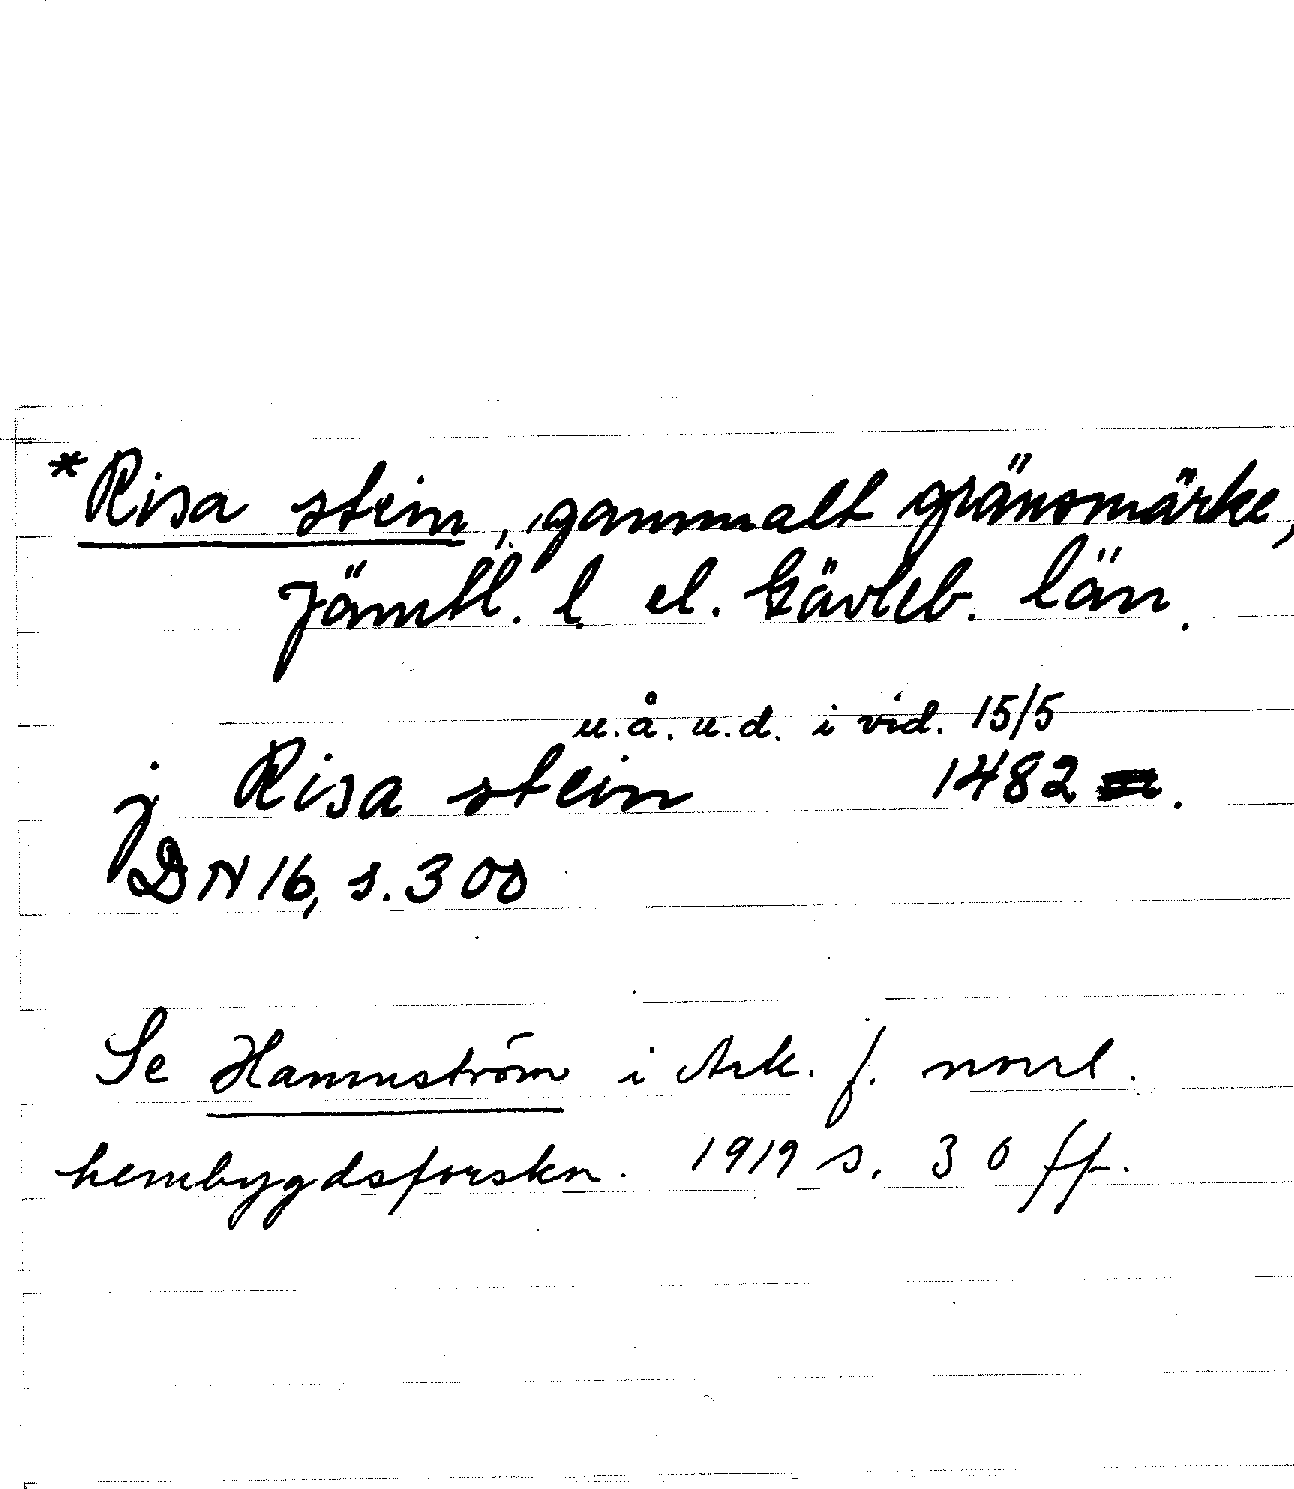 *Risa stein, gammalt gränsmärke,
Jämtl. l. el. Gävleb. län.
u.å. u.d. i vid. 15/5
j Risa stein 1482.
DN 16, s. 300
Se Hammström i Ark. f. norrl.
hembygdsforskn. 1919 s. 30 ff.